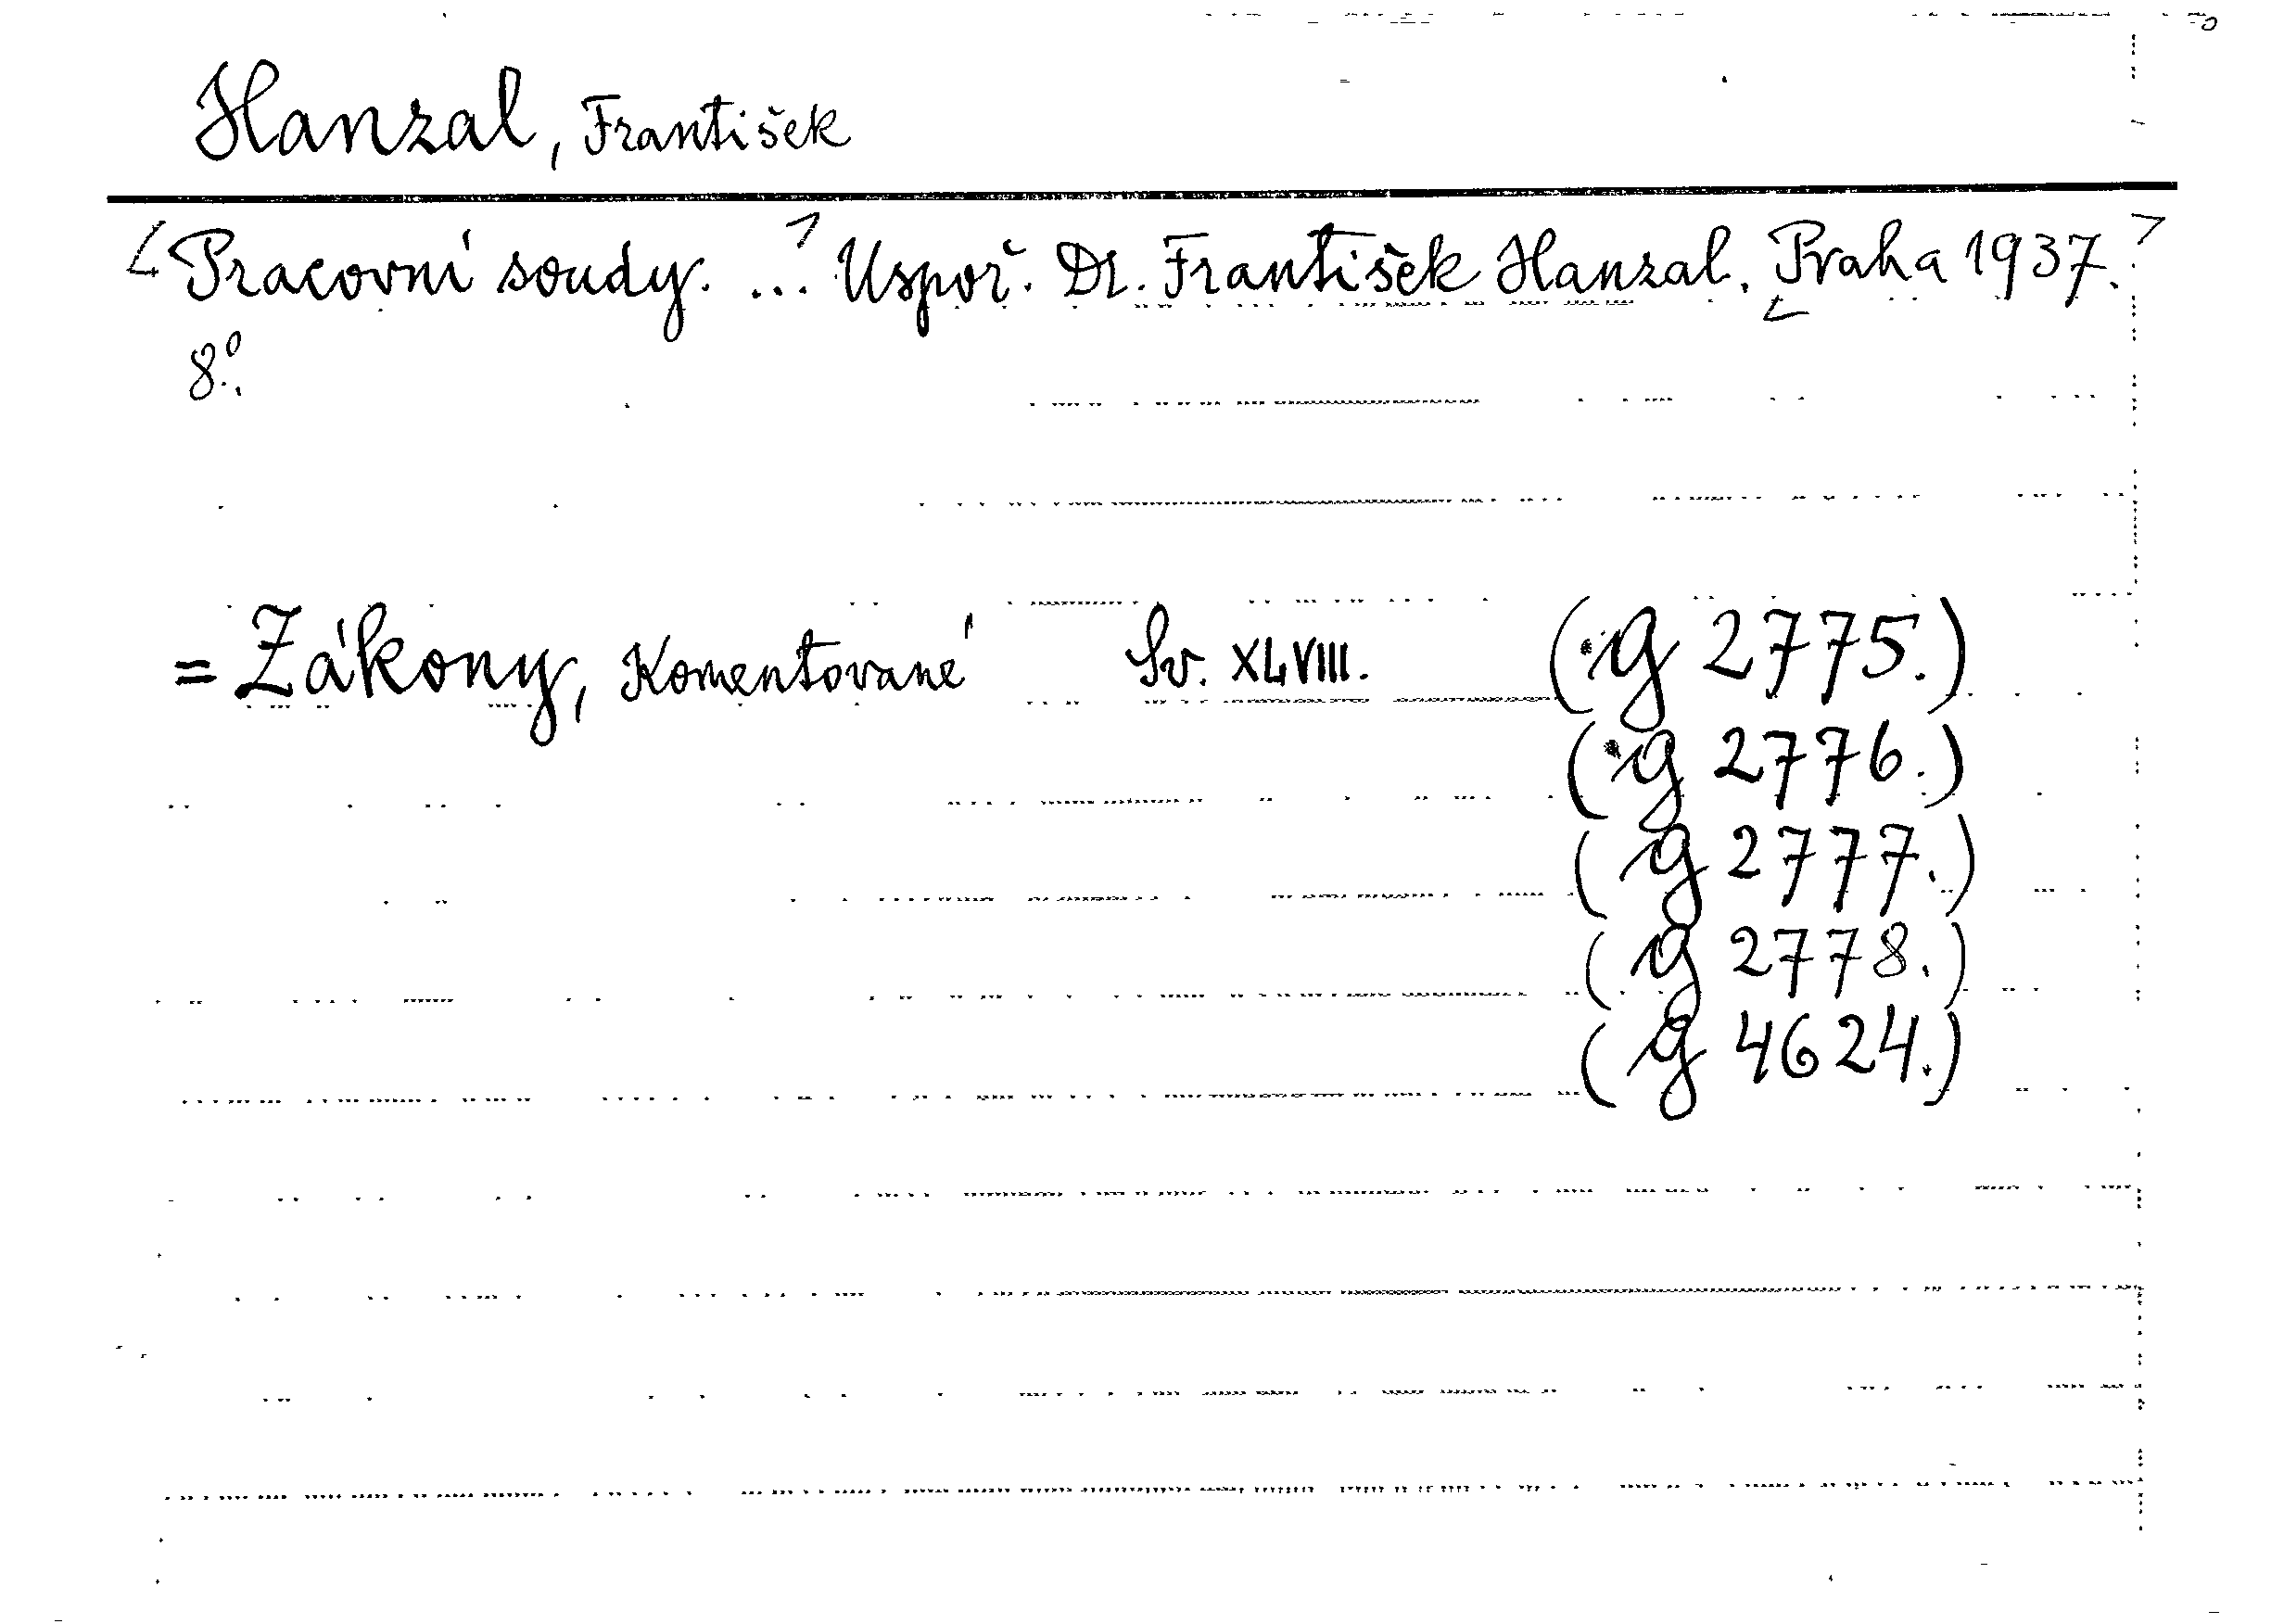 Hanzal, František
Pracovní soudy. ... Uspoř. Dr. František Hanzal. Praha 1937.
8°.
= Zákony, Komentované Sv. XLVIII. (g 2775.)
(g 2776.)
(g 2777.)
(g 2778.)
(g 4624.)